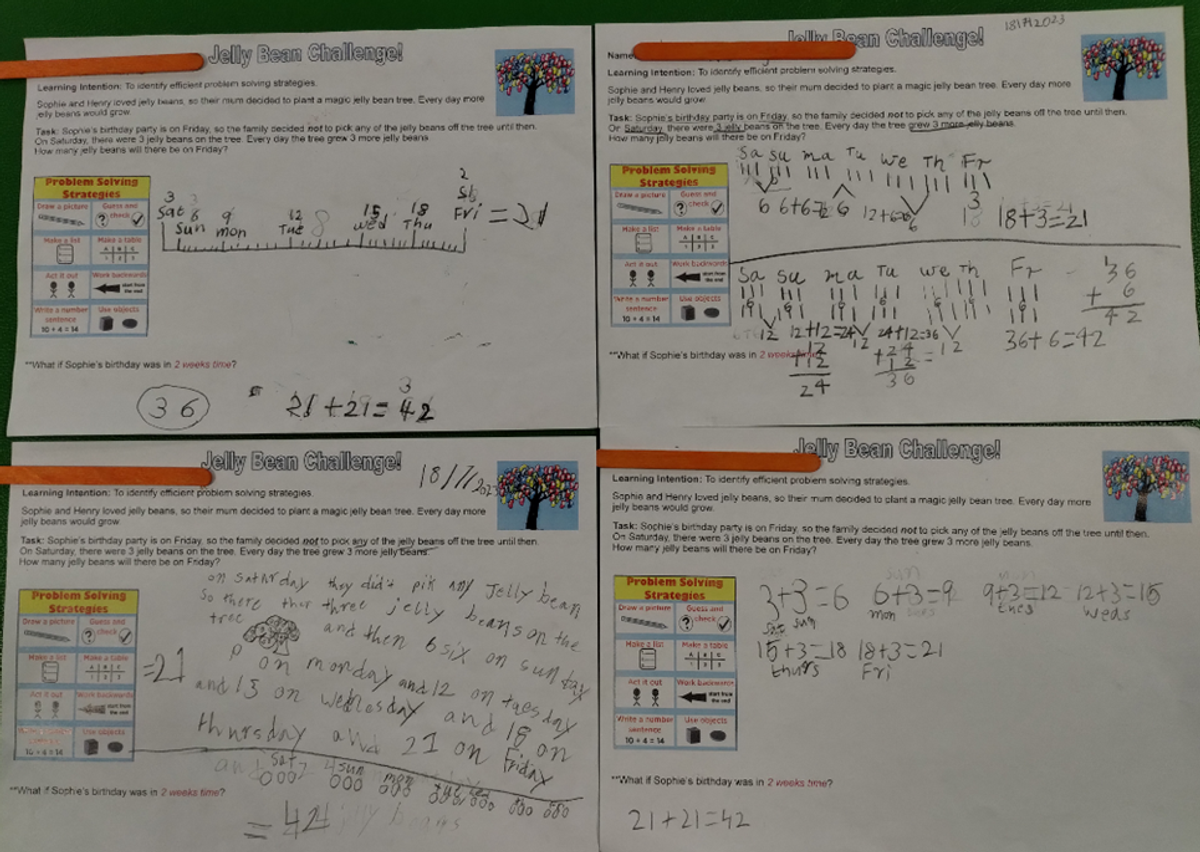 Jelly Bean Challenge!
Learning Intention: To identify efficient problem solving strategies.
Sophie and Henry loved jelly beans, so their mum decided to plant a magic jelly bean tree. Every day more
jelly beans would grow.
Task: Sophie's birthday party is on Friday, so the family decided not to pick any of the jelly beans off the tree until then.
On Saturday, there were 3 jelly beans on the tree. Every day the tree grew 3 more jelly beans.
How many jelly beans will there be on Friday?
Problem Solving
Strategies
Draw a picture
Guess and
check
Make a list
Make a table
A B C
1 2 3
Act it out
Work backwards
start from
the end
Write a number
sentence
10 + 4 = 14
Use objects
3 6 9 12 15 18
Sat Sun mon Tue wed Thu Fri = 21
**What if Sophie's birthday was in 2 weeks time?
36
21 + 21 = 42
18/7/2023
Jelly Bean Challenge!
Name
Learning Intention: To identify efficient problem solving strategies.
Sophie and Henry loved jelly beans, so their mum decided to plant a magic jelly bean tree. Every day more
jelly beans would grow.
Task: Sophie's birthday party is on Friday, so the family decided not to pick any of the jelly beans off the tree until then.
On Saturday, there were 3 jelly beans on the tree. Every day the tree grew 3 more jelly beans.
How many jelly beans will there be on Friday?
Problem Solving
Strategies
Draw a picture
Guess and
check
Make a list
Make a table
A B C
1 2 3
Act it out
Work backwards
start from
the end
Write a number
sentence
10 + 4 = 14
Use objects
Sa Su ma Tu We Th Fr
6 6+6=12 6 12+6= 6 3
18+3=21
Sa Su ma Tu we Th Fr
12 12+12=24 12 24+12=36 12 36+6=42
+12
24
+24
12
36
36
+ 6
42
**What if Sophie's birthday was in 2 weeks time?
Jelly Bean Challenge!
18/7/2023
Learning Intention: To identify efficient problem solving strategies.
Sophie and Henry loved jelly beans, so their mum decided to plant a magic jelly bean tree. Every day more
jelly beans would grow.
Task: Sophie's birthday party is on Friday, so the family decided not to pick any of the jelly beans off the tree until then.
On Saturday, there were 3 jelly beans on the tree. Every day the tree grew 3 more jelly beans.
How many jelly beans will there be on Friday?
Problem Solving
Strategies
Draw a picture
Guess and
check
Make a list
Make a table
A B C
1 2 3
Act it out
Work backwards
start from
the end
10 + 4 = 14
Use objects
on saturday they did't pik any Jelly bean
So there thar three jelly beans on the
tree and then 6 six on sunday
on monday and 12 on tuesday
=21
and 15 on wednesday and 18 on
thursday and 21 on Friday
Sat sun mon
**What if Sophie's birthday was in 2 weeks time?
= 42 jelly beans
Jelly Bean Challenge!
Learning Intention: To identify efficient problem solving strategies.
Sophie and Henry loved jelly beans, so their mum decided to plant a magic jelly bean tree. Every day more
jelly beans would grow.
Task: Sophie's birthday party is on Friday, so the family decided not to pick any of the jelly beans off the tree until then.
On Saturday, there were 3 jelly beans on the tree. Every day the tree grew 3 more jelly beans.
How many jelly beans will there be on Friday?
Problem Solving
Strategies
Draw a picture
Guess and
check
Make a list
Make a table
A B C
1 2 3
Act it out
Work backwards
start from
the end
Write a number
sentence
10 + 4 = 14
Use objects
3+3=6 6+3=9 9+3=12 12+3=15
Sat sun mon tues weds
15+3=18 18+3=21
thurs Fri
**What if Sophie's birthday was in 2 weeks time?
21+21=42